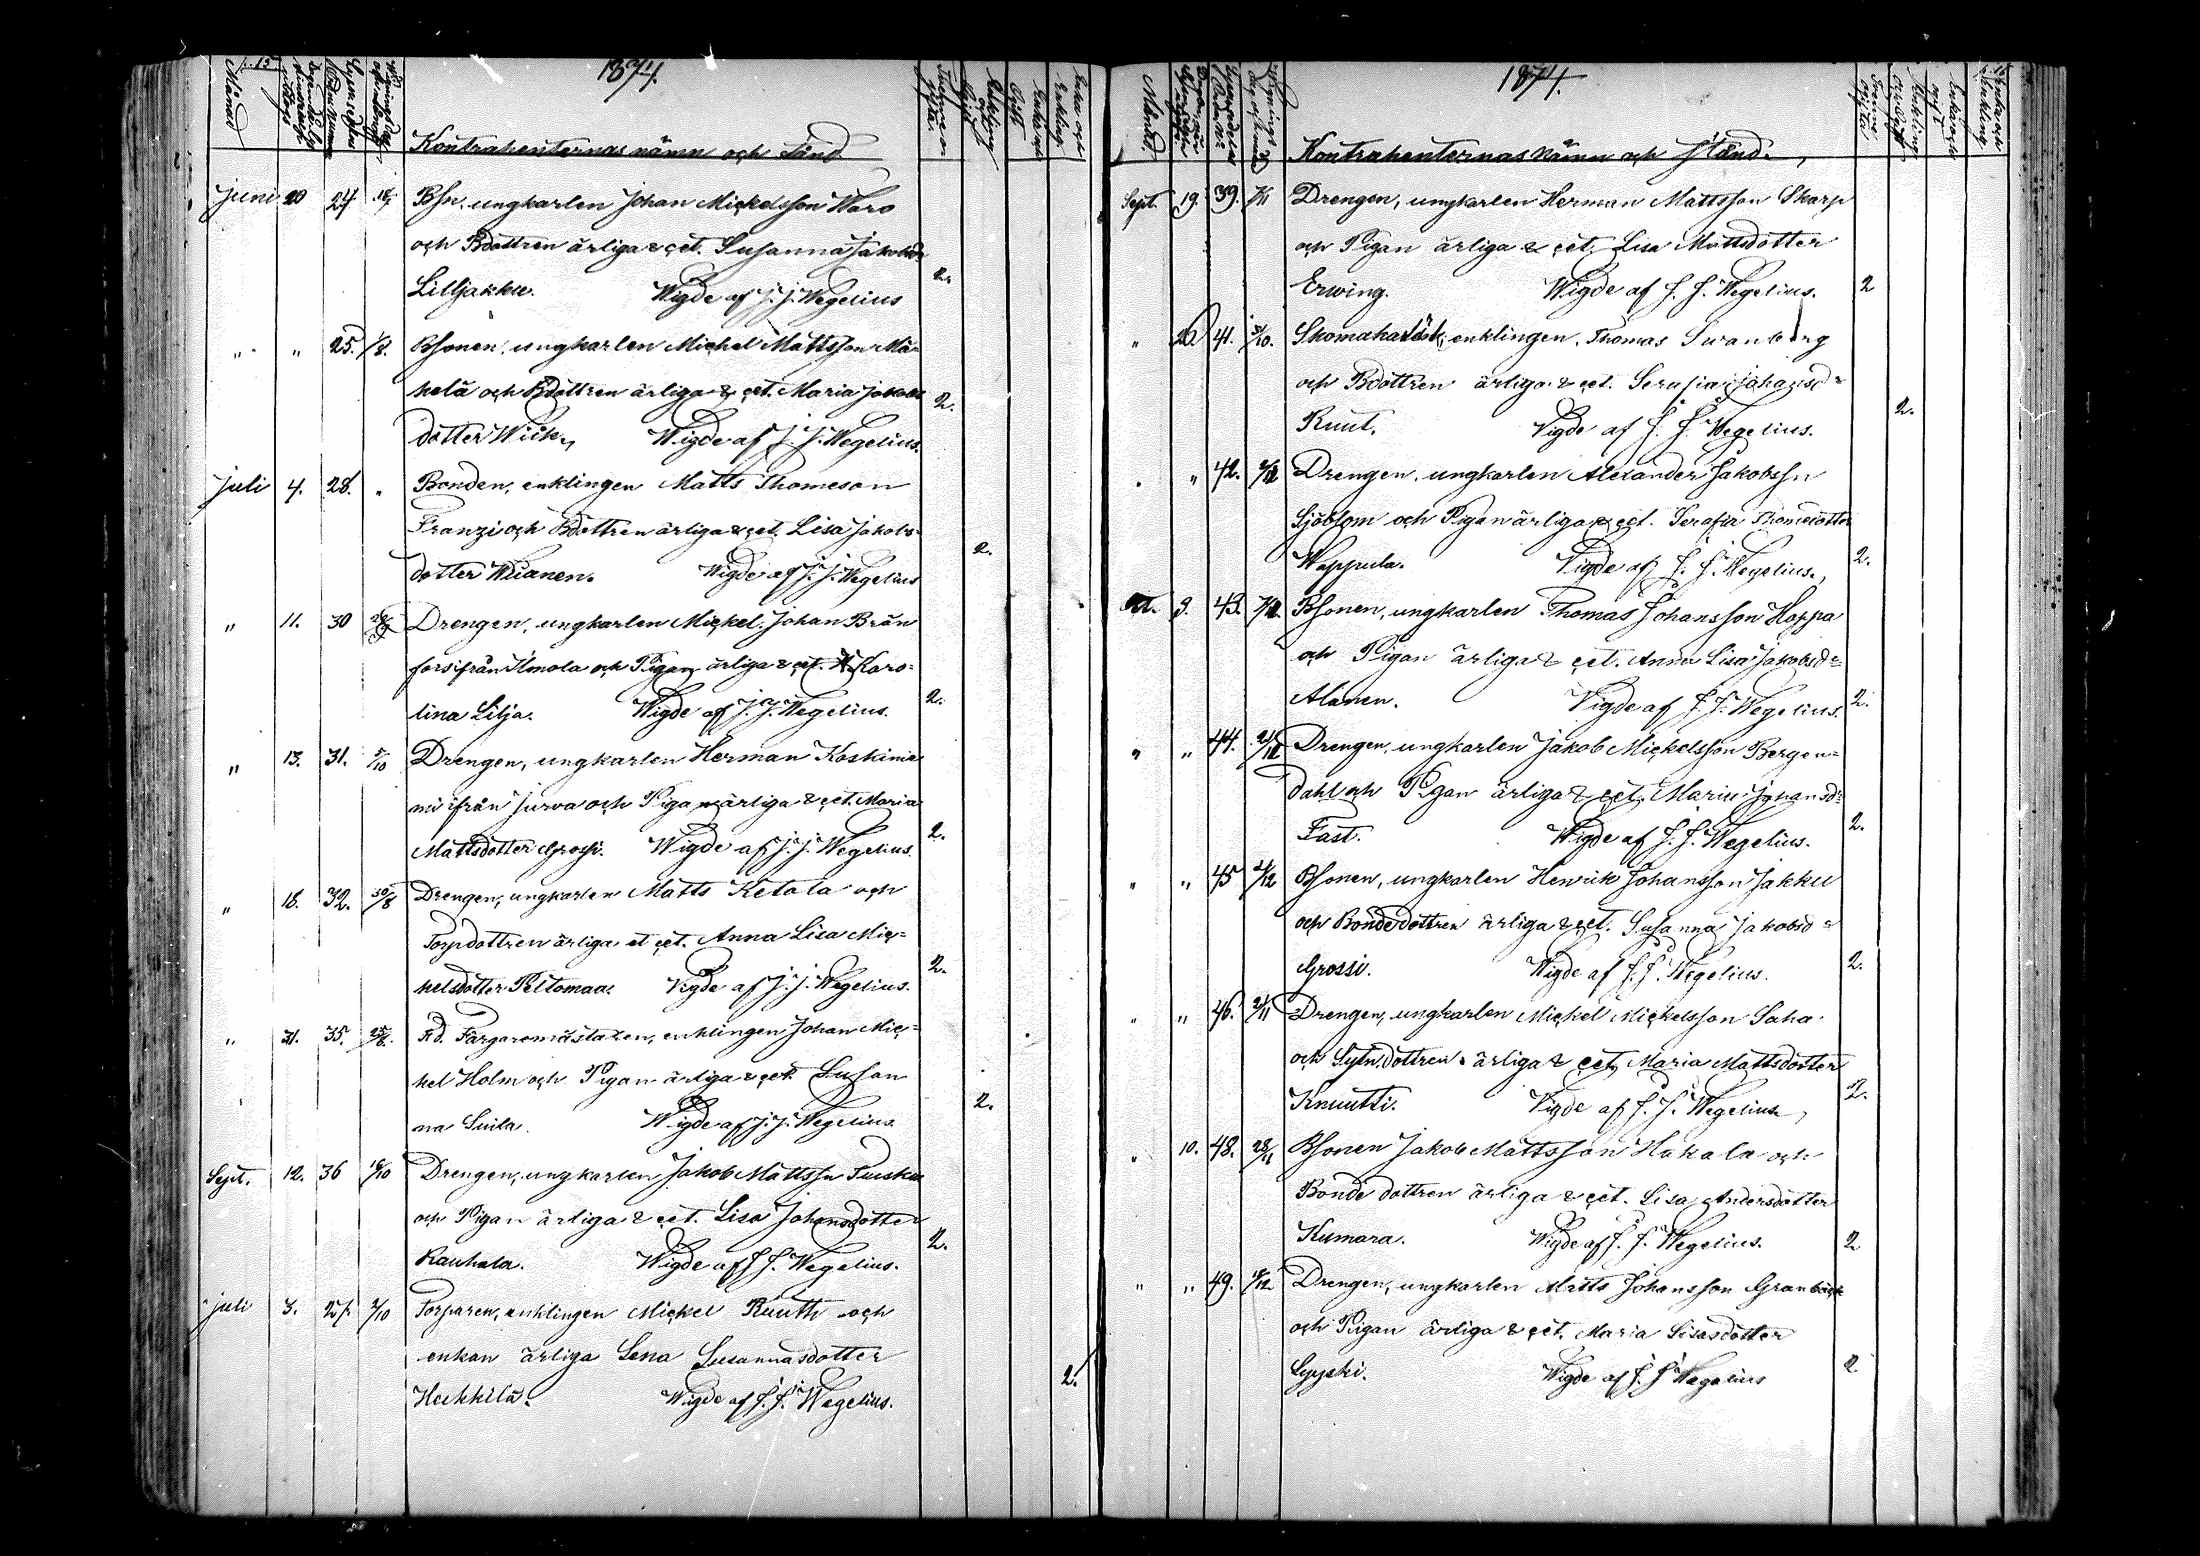 1874.
Kontrahenternas namn och stånd
Juni 20 24 18/7 Bsn, ungkarlen Johan Mickelsson Waro
och Bdottren ärliga & çet. Susanna Jakobsdr
Lilljakku. Wigde af J. J. Wegelius 2.
" " 25. 1/8. Bsonen, ungkarlen Mickel Mattsson Mä-
kelä och Bdottren ärliga & çet. Maria Jakobs 2.
dotter Wiik, Wigde af J. J. Wegelius.
Juli 4. 28. " Bonden, enklingen Matts Thomeson
Franzi och Bdottren ärliga & çet. Lisa Jakobs- 2.
dotter Wiianen. Wigde af J. J. Wegelius
" 11. 30 Drengen, ungkarlen Mickel Johan Brän
fors ifrån Ilmola och Pigan ärliga & çet. Karo-
lina Lilja. Wigde af J. J. Wegelius. 2.
" 13. 31. 5/10 Drengen, ungkarlen Herman Koskinie
mi ifrån Jurva och Pigan ärliga & çet. Maria
Mattsdotter Grossi. Wigde af J. J. Wegelius. 2.
" 18. 32. 30/8 Drengen, ungkarlen Matts Ketola och
Torpdottren ärliga et çet. Anna Lisa Mic-
kelsdotter Peltomaa. Wigde af J. J. Wegelius. 2.
" 31. 35. 25/8. Fd. Färgaremästaren, enklingen Johan Mic-
kel Holm och Pigan ärliga & çet. Susan
na Luila. Wigde af J. J. Wegelius 2.
Sept. 12. 36 18/10 Drengen, ungkarlen Jakob Mattssn Tuisku
och Pigan ärliga & çet. Lisa Johansdotter
Rauhala. Wigde af J. J. Wegelius. 2.
Juli 3. 27. 2/10 Torparen, enklingen Mickel Ruuth och
enkan ärliga Lena Susannasdotter
Heikkilä. Wigde af J. J. Wegelius. 2.
1874.
Månad
Kontrahenternas namn och stånd.
Sept. 19. 39. 7/11 Drengen, ungkarlen Herman Mattsson Skarp
och Pigan ärliga & çet. Lisa Mattsdotter
Erwing. Wigde af J. J. Wegelius. 2
" 26 41. 31/10. Skomakar enklingen, Thomas Swanberg
och Bdottren ärliga & çet. Serafia Johansd=
Knut. Wigde af J. J. Wegelius. 2.
" " 42. Drengen, ungkarlen Alexander Jakobssn
Sjöblom och Pigan ärliga & çet. Serafia Thomedotter
Wappula. Wigde af J. J. Wegelius. 2.
Oct. 3. 43. Bsonen, ungkarlen Thomas Johansson Hoppa
och Pigan ärliga & çet. Anna Lisa Jakobsd=
Alanen. Wigde af J. J. Wegelius. 2.
" " 44. Drengen, ungkarlen Jakob Mickelsson Bergen=
dahl och Pigan ärliga & çet. Maria Johansd=
Fast. Wigde af J. J. Wegelius. 2.
" " 45 Bsonen, ungkarlen Henrik Johansson Jakku
och Bondedottren ärliga & çet. Susanna Jakobsd=
Grossi. Wigde af J. J. Wegelius. 2.
" " 46. 21/11 Drengen, ungkarlen Mickel Mickelsson Saha
och Sytn.dottren ärliga & çet. Maria Mattsdotter
Knuutti. Wigde af J. J. Wegelius, 2.
" 10. 48. 28/11 Bsonen Jakob Mattsson Hakala och
Bonde dottren ärliga & çet. Lisa Andersdotter
Kumara. Wigde af J. J. Wegelius. 2
" " 49. Drengen, ungkarlen Matts Johansson Granbäck
och Pigan ärliga & çet. Maria Lisasdotter
Gyyski. Wigde af J. J. Wegelius 2